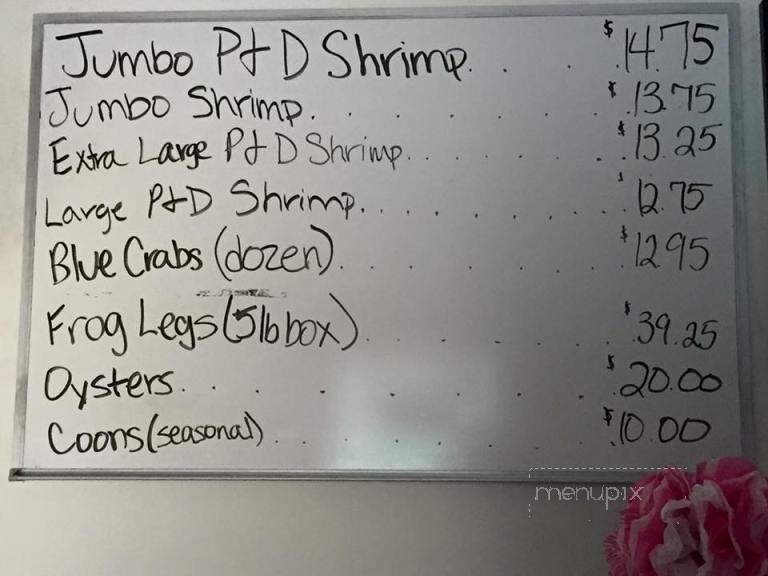 Jumbo P&D Shrimp. . . $14.75
Jumbo Shrimp. . . . . . $13.75
Extra Large P&D Shrimp. . . . . . $13.25
Large P&D Shrimp. . . . . . . . $12.75
Blue Crabs (dozen). . . . . . . $12.95
Frog Legs (5lb box). . . . . . $39.25
Oysters. . . . . . . . $20.00
Coons (seasonal). . . . . . . $10.00
menupix